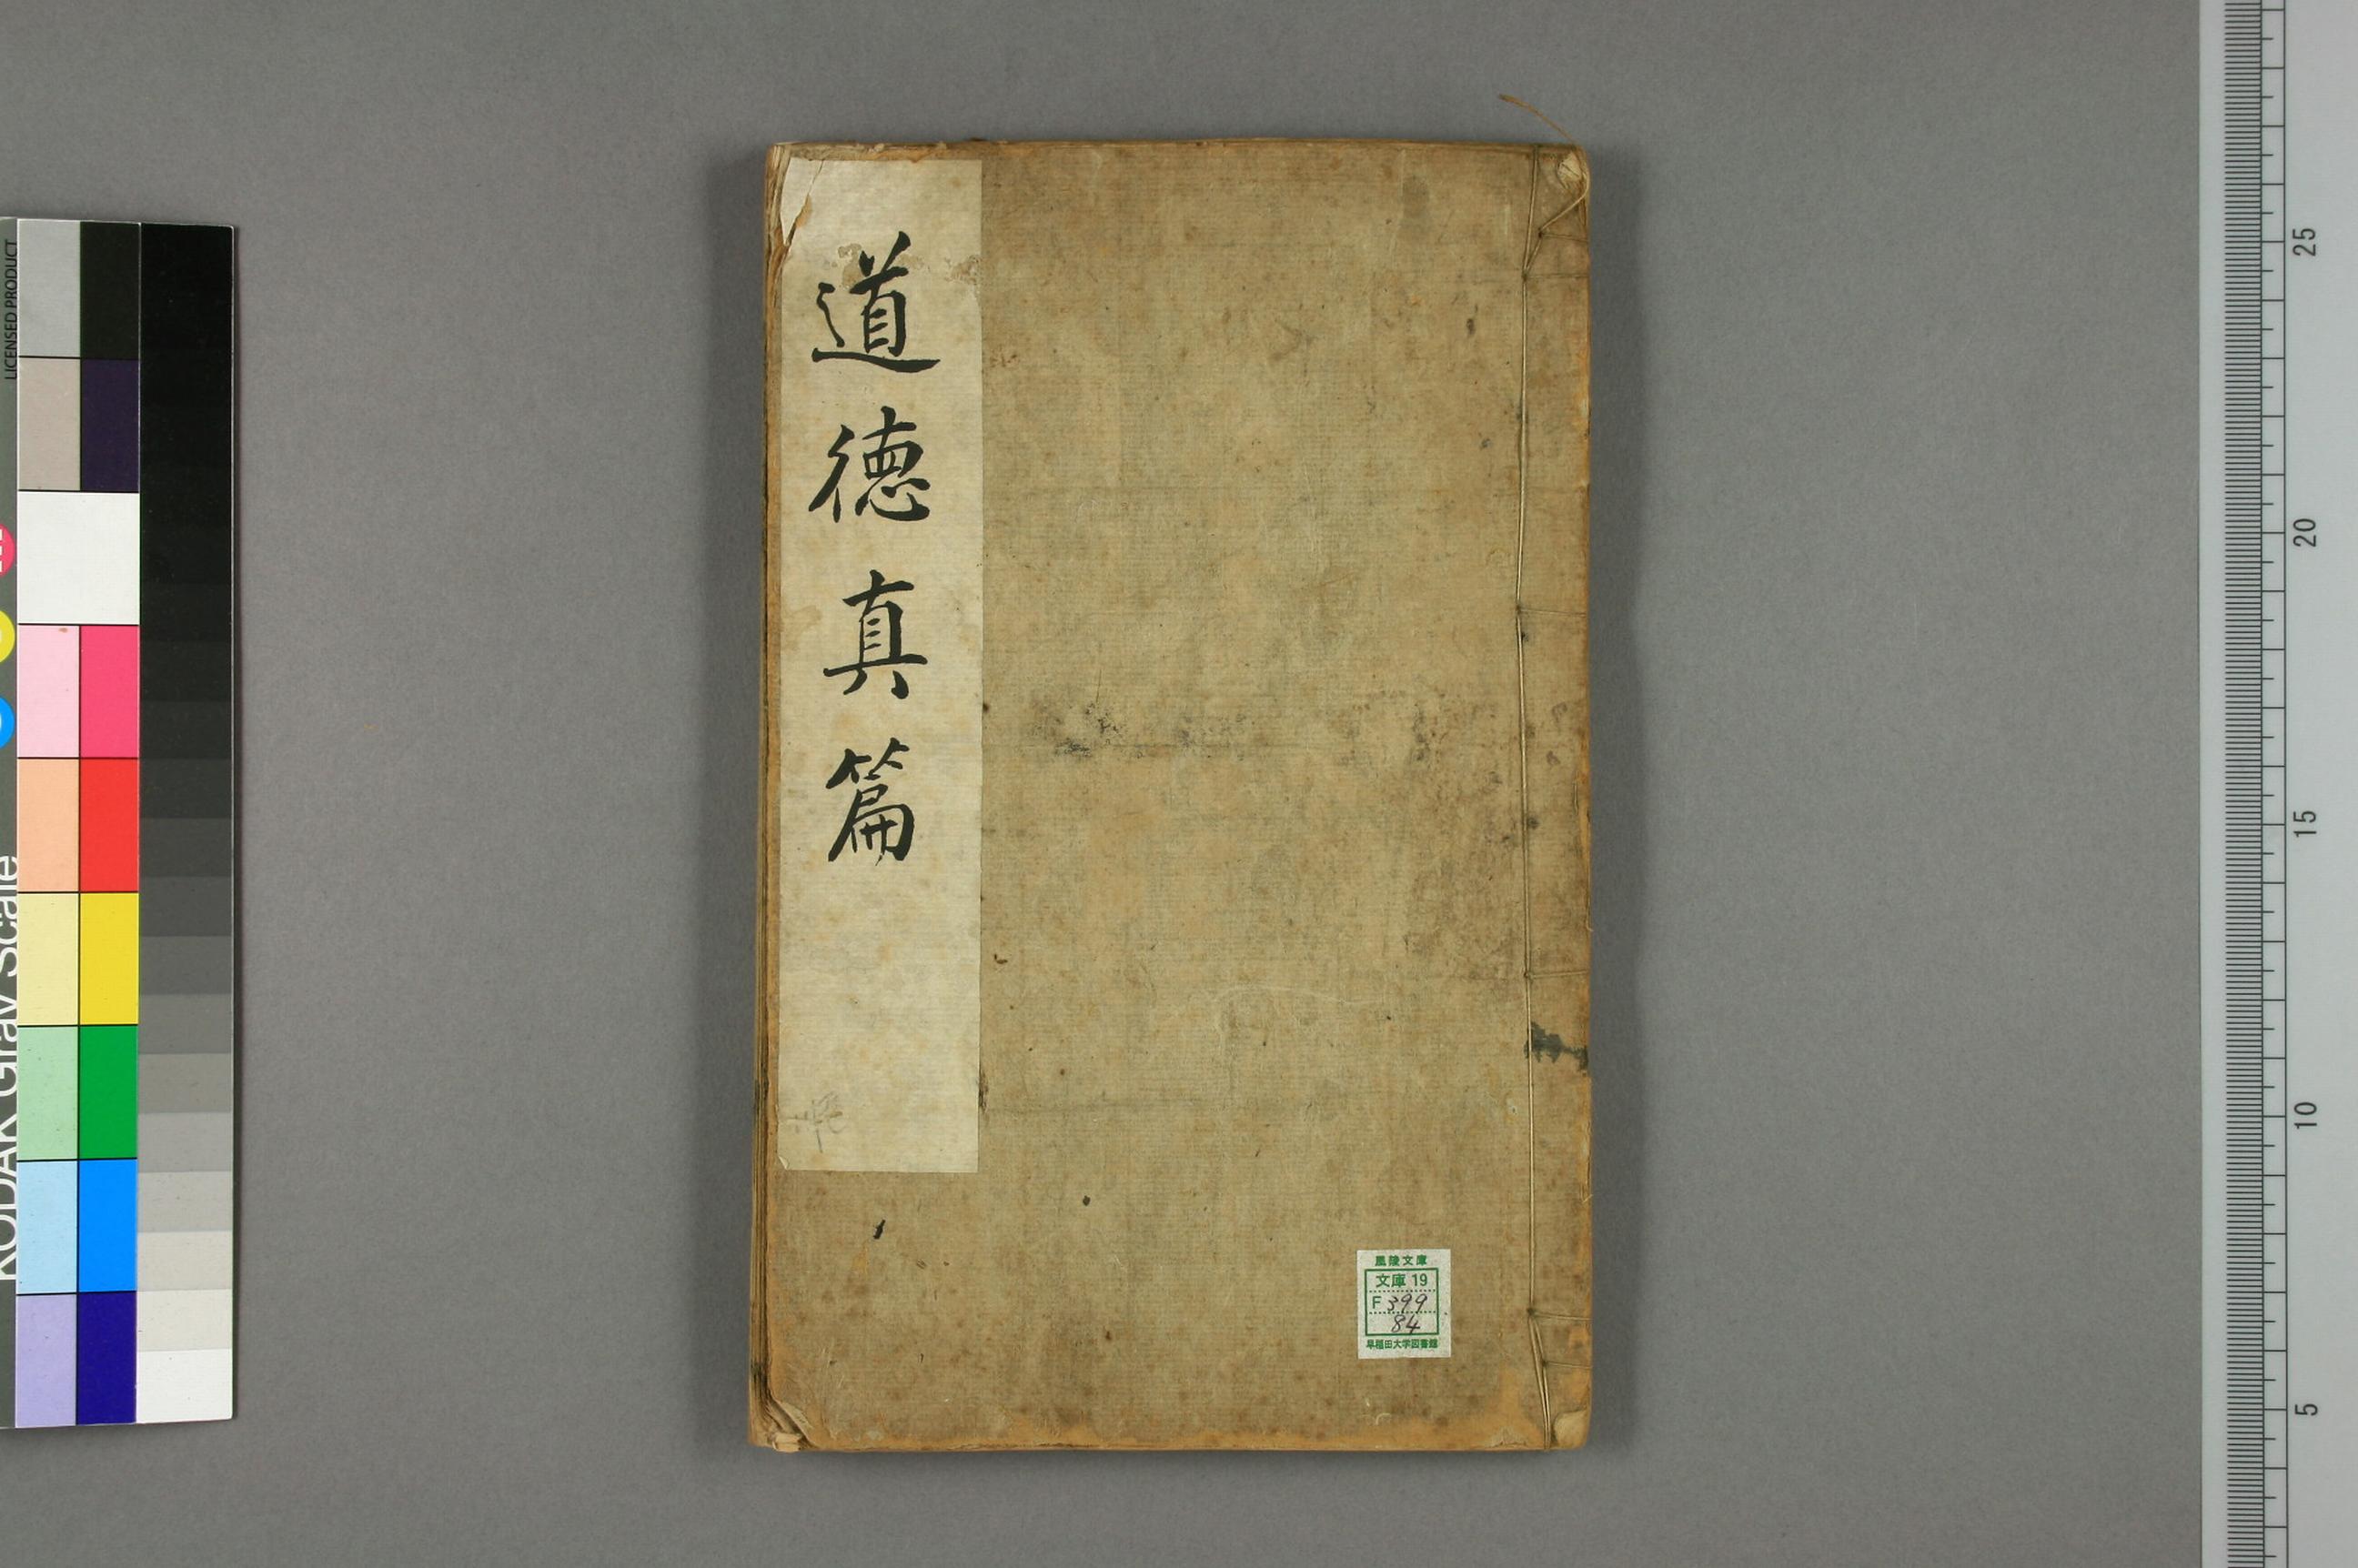 道德真篇
風陵文庫
文庫 19
F 399
84
早稲田大学図書館
LICENSED PRODUCT
KODAK Gray Scale
25
20
15
10
5